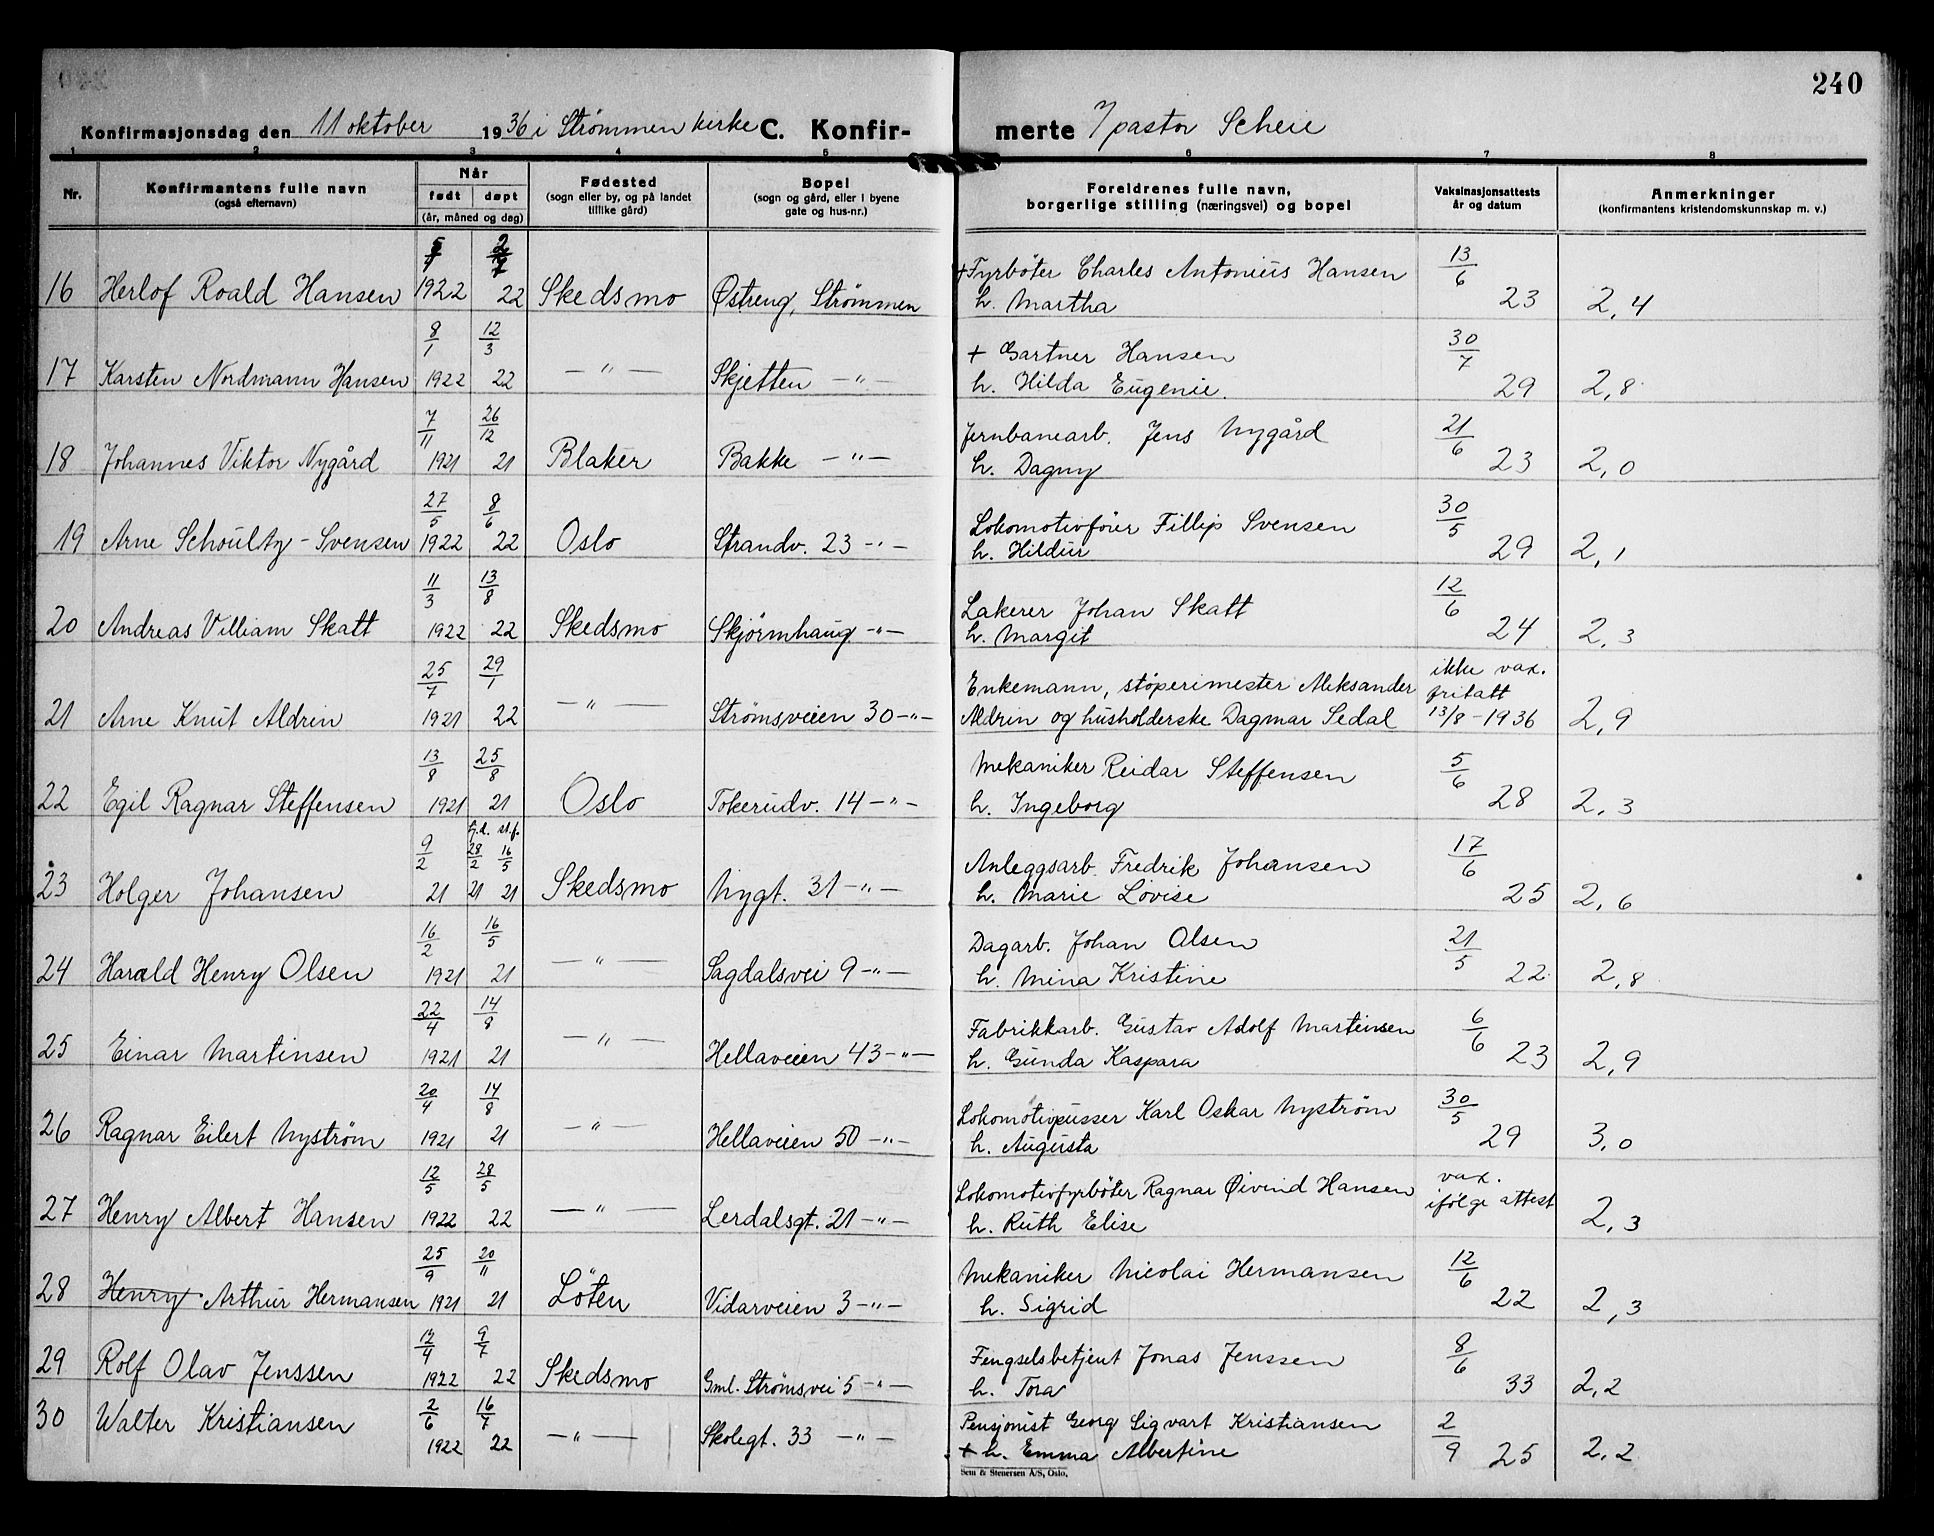 240
Konfirmasjonsdag den 11 oktober 1936 i Strømmen kirke C. Konfirmerte v/ pastor Scheie
1 2 3 4 5 6 7 8
Nr. Konfirmantens fulle navn (også efternavn) Når født døpt (år, måned og dag) Fødested (sogn eller by, og på landet tillike gård) Bopel (sogn og gård, eller i byene gate og hus-nr.) Foreldrenes fulle navn, borgerlige stilling (næringsvei) og bopel Vaksinasjonsattests år og datum Anmerkninger (konfirmantens kristendomskunnskap m. v.)
16 Herlof Roald Hansen 1922 22 Skedsmo Østreng, Strømmen + Fyrbøter Charles Antonius Hansen 13/6
h. Martha 23 2,4
17 Karsten Nordmann Hansen 8/1 1922 12/3 22 —"— Skjetten —"— + Gartner Hansen 30/7
h. Hilda Eugenie. 29 2,8
18 Johannes Viktor Nygård 7/11 1921 26/12 21 Blaker Bakke —"— Jernbanearb. Jens Nygård 21/6
h. Dagny 23 2,0
19 Arne Schoultz-Svensen 27/5 1922 8/6 22 Oslo Strandv. 23 —"— Lokomotivfører Fillip Svensen 30/5
h. Hildur 29 2,1
20 Andreas Villiam Skatt 11/3 1922 13/8 22 Skedsmo Skjørmhaug —"— Lakerer Johan Skatt 12/6
h. Margit 24 2,3
21 Arne Knut Aldrin 25/7 1921 29/1 22 —"— Strømsveien 30 —"— Enkemann, støperimester Aleksander ikke vax. fritatt
Aldrin og husholderske Dagmar Sedal 13/8-1936 2,9
22 Egil Ragnar Steffensen 13/8 1921 25/8 21 Oslo Tokerudv. 14 —"— Mekaniker Reidar Steffensen 5/6
h. Ingeborg 28 2,3
23 Holger Johansen 9/2 21 hj.d. 28/2 21 st.f. 16/5 21 Skedsmo Nygt. 31 —"— Anleggsarb. Fredrik Johansen 17/6
h. Marie Lovise 25 2,6
24 Harald Henry Olsen 16/2 1921 16/5 21 —"— Sagdalsvei 9 —"— Dagarb. Johan Olsen 21/5
h. Mina Kristine 22 2,8
25 Einar Martinsen 22/4 1921 14/8 21 —"— Hellaveien 43 —"— Fabrikkarb. Gustav Adolf Martinsen 6/6
h. Gunda Kaspara 23 2,9
26 Ragnar Eilert Nystrøm 20/4 1921 14/8 21 —"— Hellaveien 50 —"— Lokomotivpusser Karl Oskar Nystrøm 30/5
h. Augusta 29 3,0
27 Henry Albert Hansen 12/5 1922 28/5 22 —"— Lerdalsgt. 21 —"— Lokomotivfyrbøter Ragnar Øivind Hansen vax. ifølge attest
h. Ruth Elise 2,3
28 Henry Arthur Hermansen 25/9 1921 20/11 21 Løten Vidarveien 3 —"— Mekaniker Nicolai Hermansen 12/6
h. Sigrid 22 2,3
29 Rolf Olav Jenssen 12/4 1922 9/7 22 Skedsmo Gml. Strømsvei 5 —"— Fengselsbetjent Jonas Jenssen 8/6
h. Tora 33 2,2
30 Walter Kristiansen 2/6 1922 16/7 22 —"— Skolegt. 33 —"— Pensjonist Georg Sigvart Kristiansen 2/9
+ h. Emma Albertine 25 2,2
Sem & Stenersen A/S, Oslo.